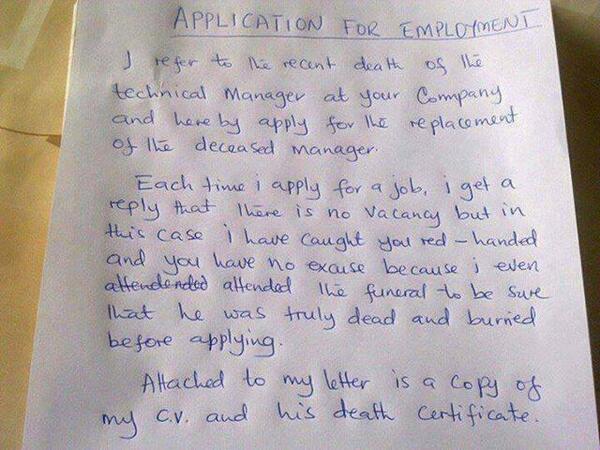 APPLICATION FOR EMPLOYMENT
I refer to the recent death of the
technical Manager at your Company
and here by apply for the replacement
of the deceased manager.
Each time i apply for a job, i get a
reply that there is no Vacancy but in
this case i have caught you red-handed
and you have no excuse because i even
attendended attended the funeral to be sure
that he was truly dead and burried
before applying.
Attached to my letter is a copy of
my C.V. and his death certificate.